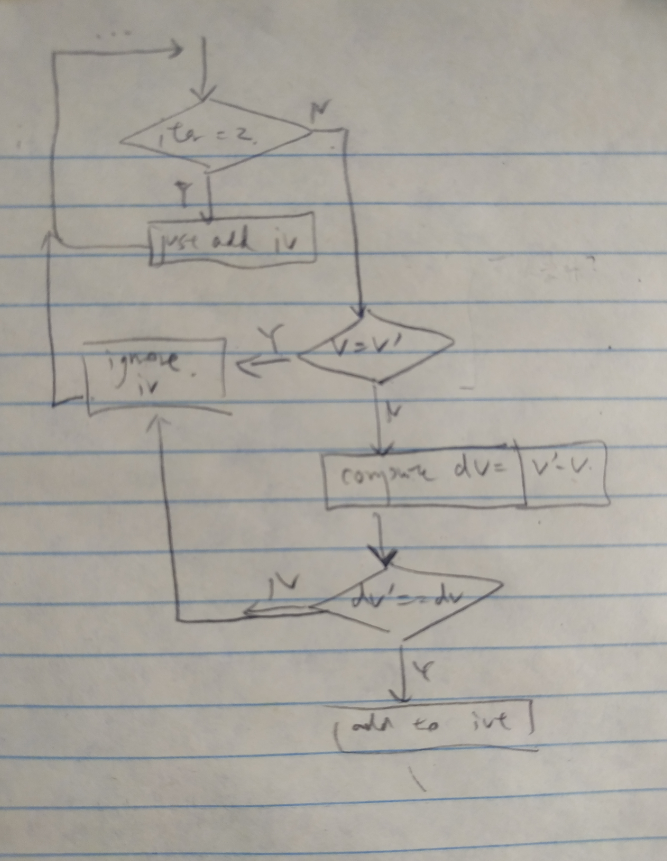 ...
N
iter = 2.
Y
just add iv
Y
V = V'
ignore
iv
N
compute dv = V' - V.
N
dv' == dv
Y
add to ivt